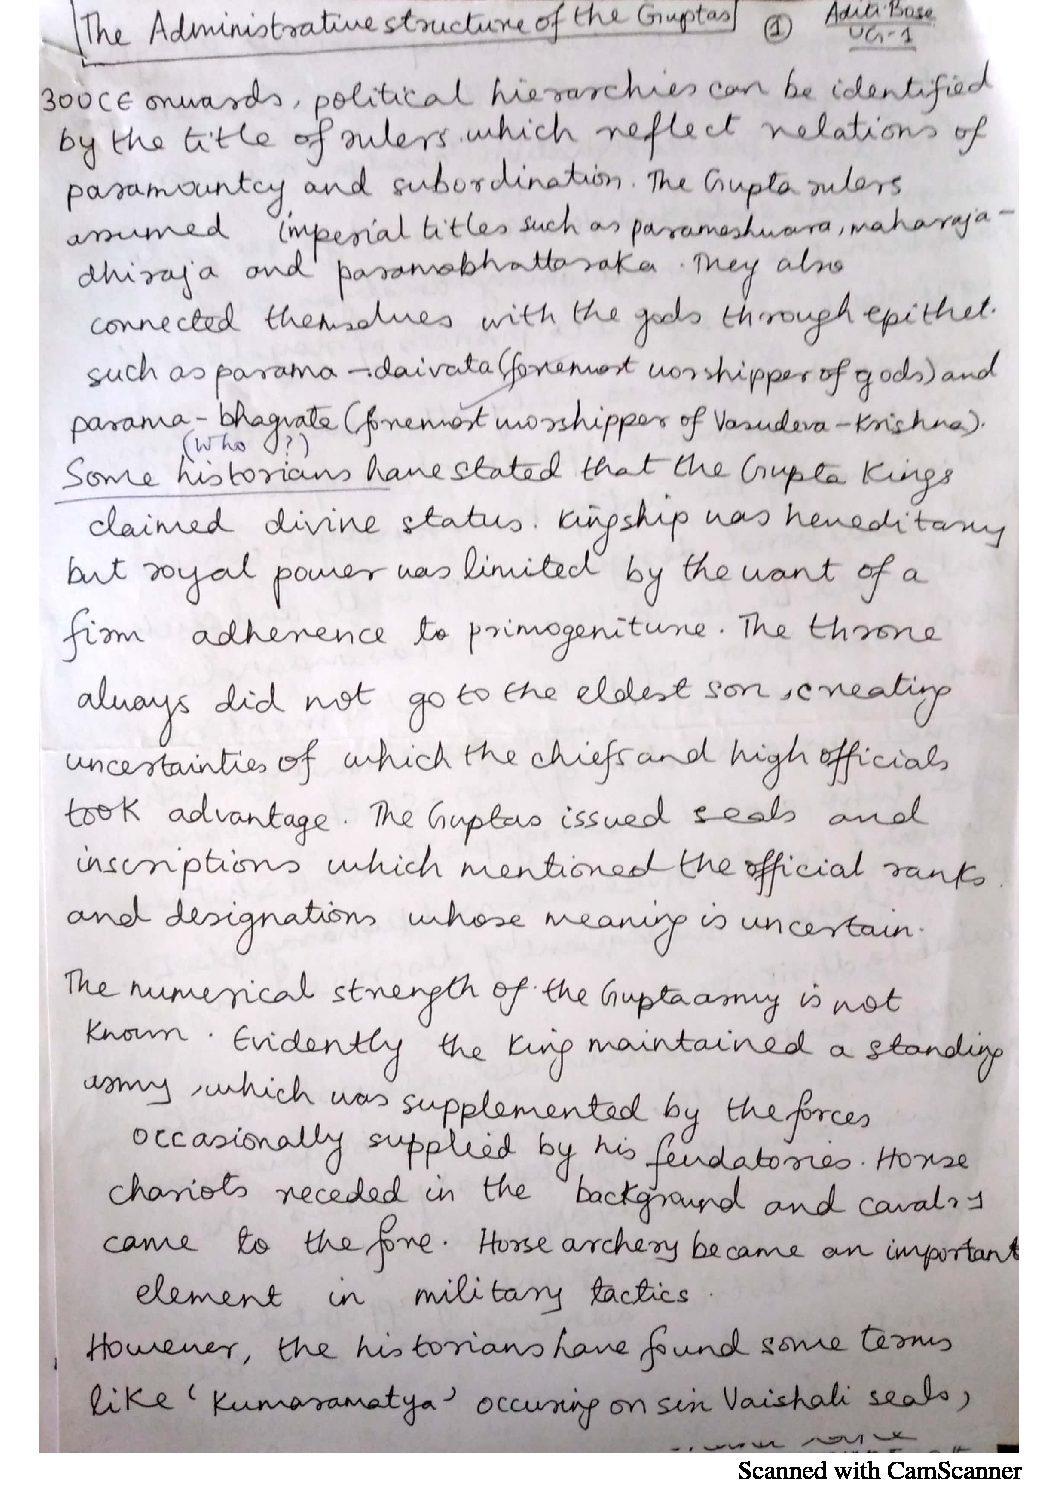 The Administrative structure of the Guptas
①
Aditi Bose
UG-1
300CE onwards, political hierarchies can be identified
by the title of rulers which reflect relations of
paramountcy and subordination. The Gupta rulers
assumed imperial titles such as parameshwara, maharaja-
dhiraja and paramabhattaraka. They also
connected themselves with the gods through epithet.
such as parama-daivata (foremost worshipper of gods) and
parama-bhagvata (foremost worshipper of Vasudeva-Krishna).
(Who ?)
Some historians have stated that the Gupta Kings
claimed divine status. Kingship was hereditary
but royal power was limited by the want of a
firm adherence to primogeniture. The throne
always did not go to the eldest son, creating
uncertainties of which the chiefs and high officials
took advantage. The Guptas issued seals and
inscriptions which mentioned the official ranks
and designations whose meaning is uncertain.
The numerical strength of the Gupta army is not
known. Evidently the king maintained a standing
army, which was supplemented by the forces
occasionally supplied by his feudatories. Horse
chariots receded in the background and cavalry
came to the fore. Horse archery became an important
element in military tactics.
However, the historians have found some terms
like 'Kumaramatya' occuring on six Vaishali seals,
Scanned with CamScanner